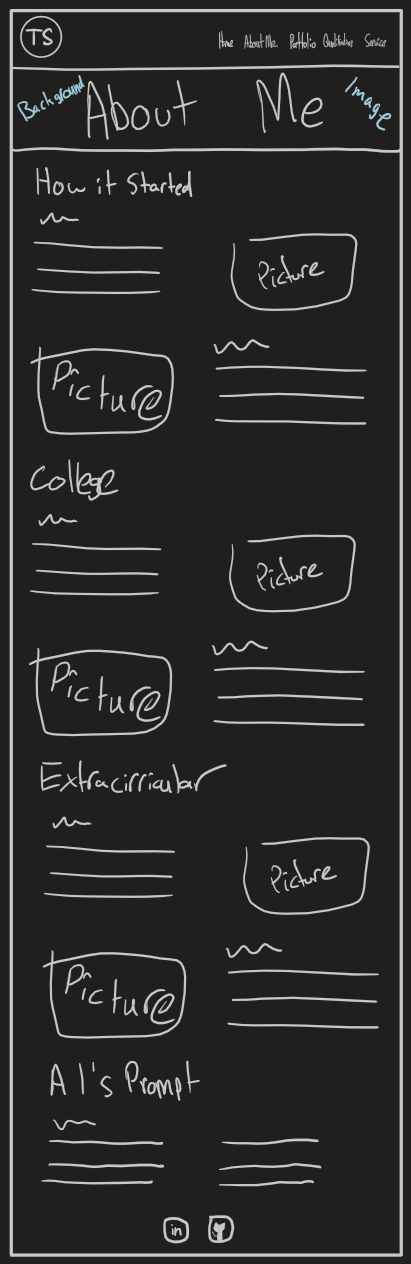 TS
Home About Me Portfolio Qualification Service
Background About Me Image
How it Started
Picture
Picture
College
Picture
Picture
Extracirricular
Picture
Picture
AI's Prompt
in